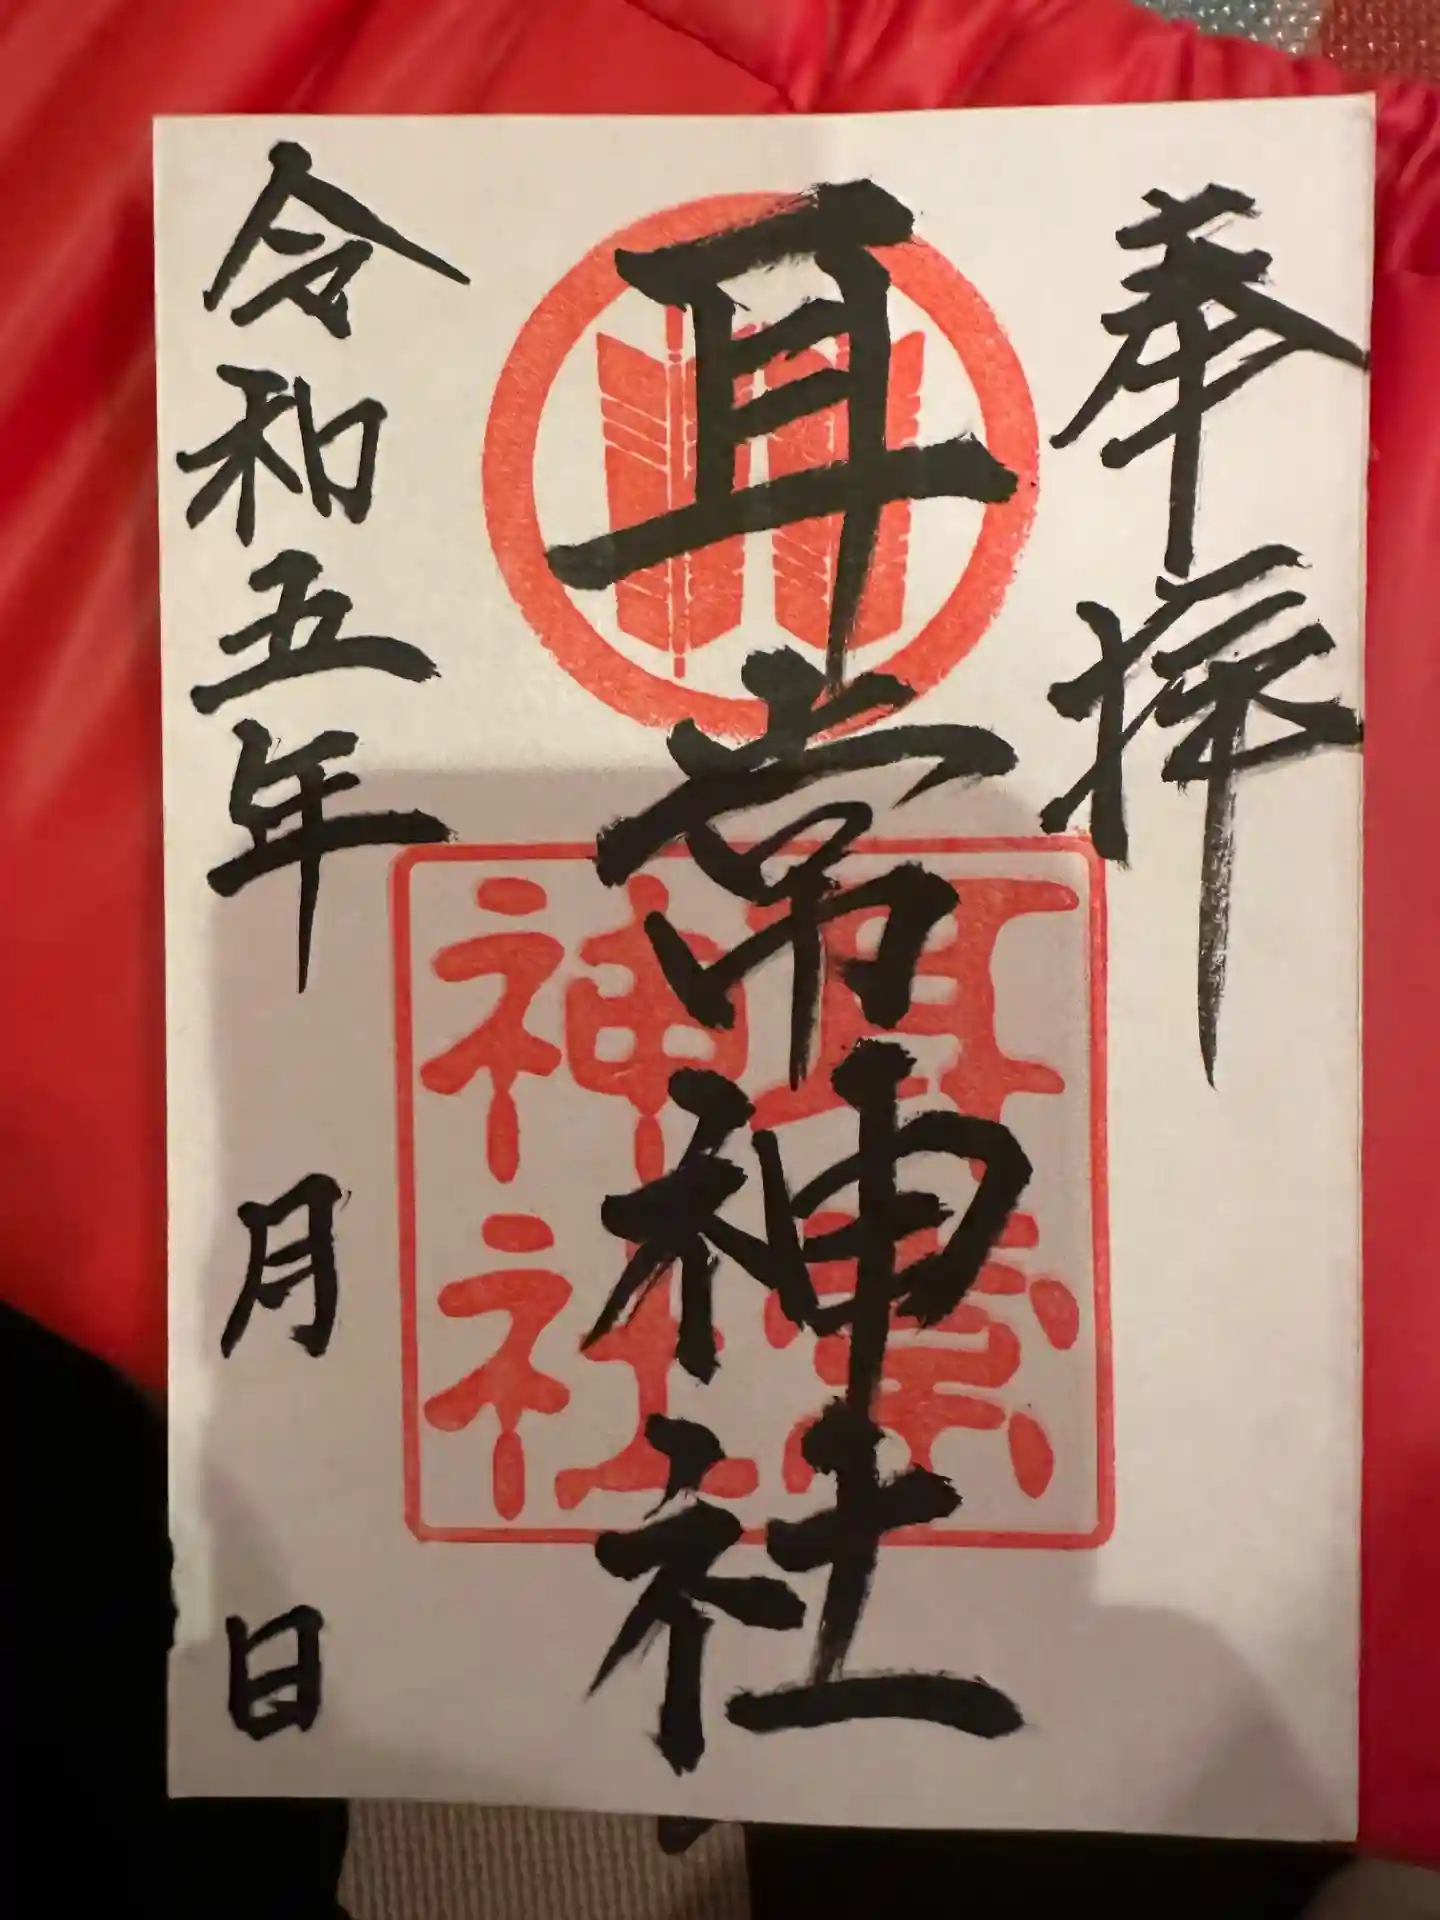 奉拝
耳常神社
耳常
神社
令和五年 月 日